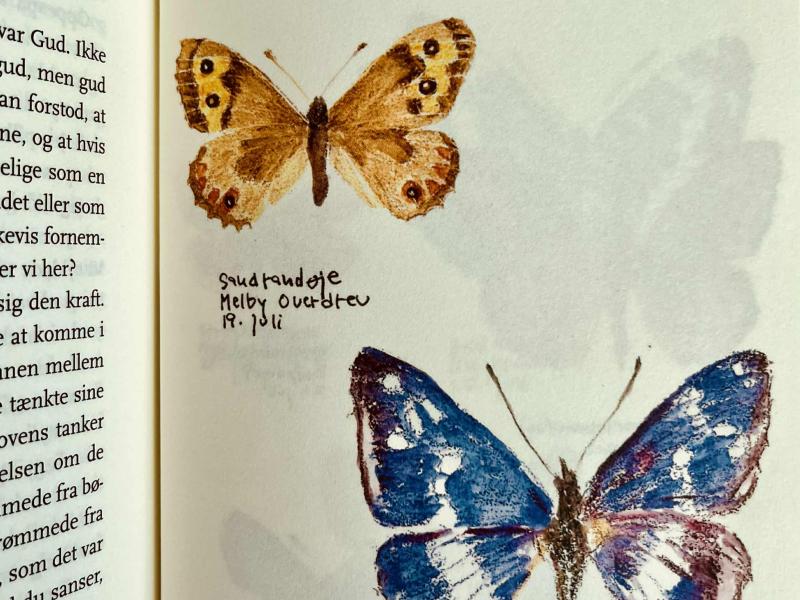 var Gud. Ikke
gud, men gud
an forstod, at
ne, og at hvis
elige som en
det eller som
kevis fornem-
er vi her?
sig den kraft.
e at komme i
nnen mellem
e tænkte sine
ovens tanker
elsen om de
mmede fra bø-
rømmede fra
, som det var
du sanser,
Sandrandøje
Melby Overdrev
19. juli